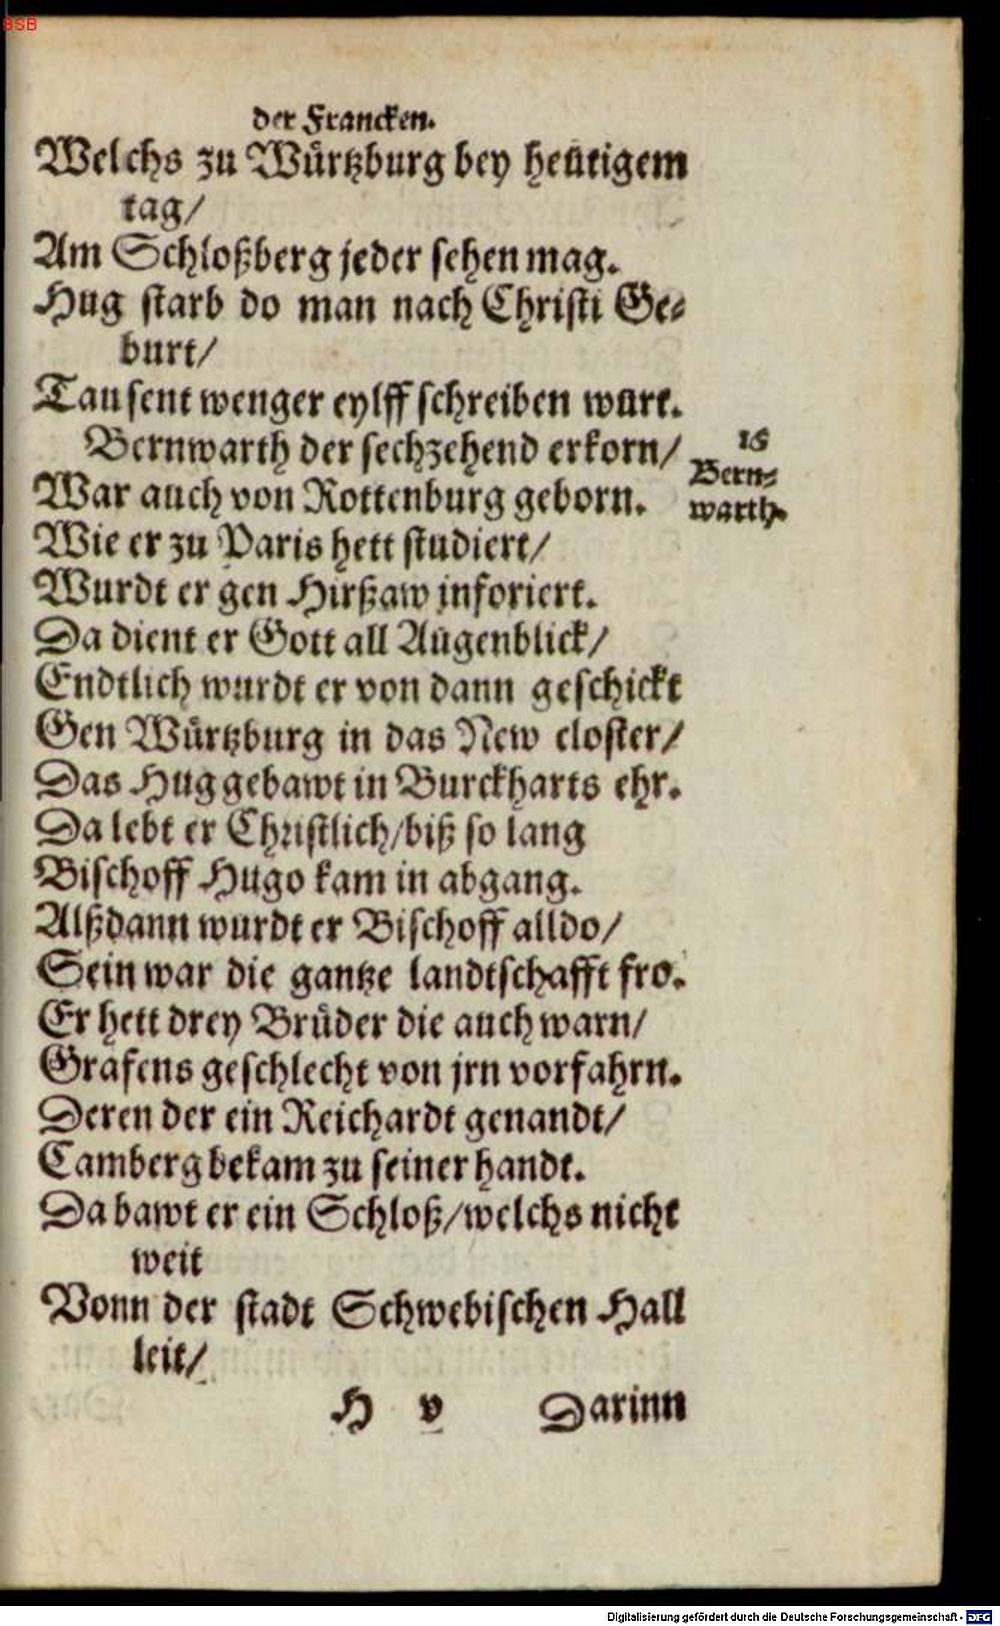 BSB
der Francken.
Welchs zu Würtzburg bey heütigem
tag/
Am Schloßberg jeder sehen mag.
Hug starb do man nach Christi Ge⸗
burt/
Tausent wenger eylff schreiben wurt.
Bernwarth der sechzehend erkorn/
16
Bern⸗
warth.
War auch von Rottenburg geborn.
Wie er zu Paris hett studiert/
Wurdt er gen Hirßaw inforiert.
Da dient er Gott all Augenblick/
Endtlich wurdt er von dann geschickt
Gen Würtzburg in das New closter/
Das Hug gebawt in Burckharts ehr.
Da lebt er Christlich/biß so lang
Bischoff Hugo kam in abgang.
Alßdann wurdt er Bischoff alldo/
Sein war die gantze landtschafft fro.
Er hett drey Brüder die auch warn/
Grafens geschlecht von jrn vorfahrn.
Deren der ein Reichardt genandt/
Camberg bekam zu seiner handt.
Da bawt er ein Schloß/welchs nicht
weit
Vonn der stadt Schwebischen Hall
leit/
H v Darinn
Digitalisierung gefördert durch die Deutsche Forschungsgemeinschaft - DFG